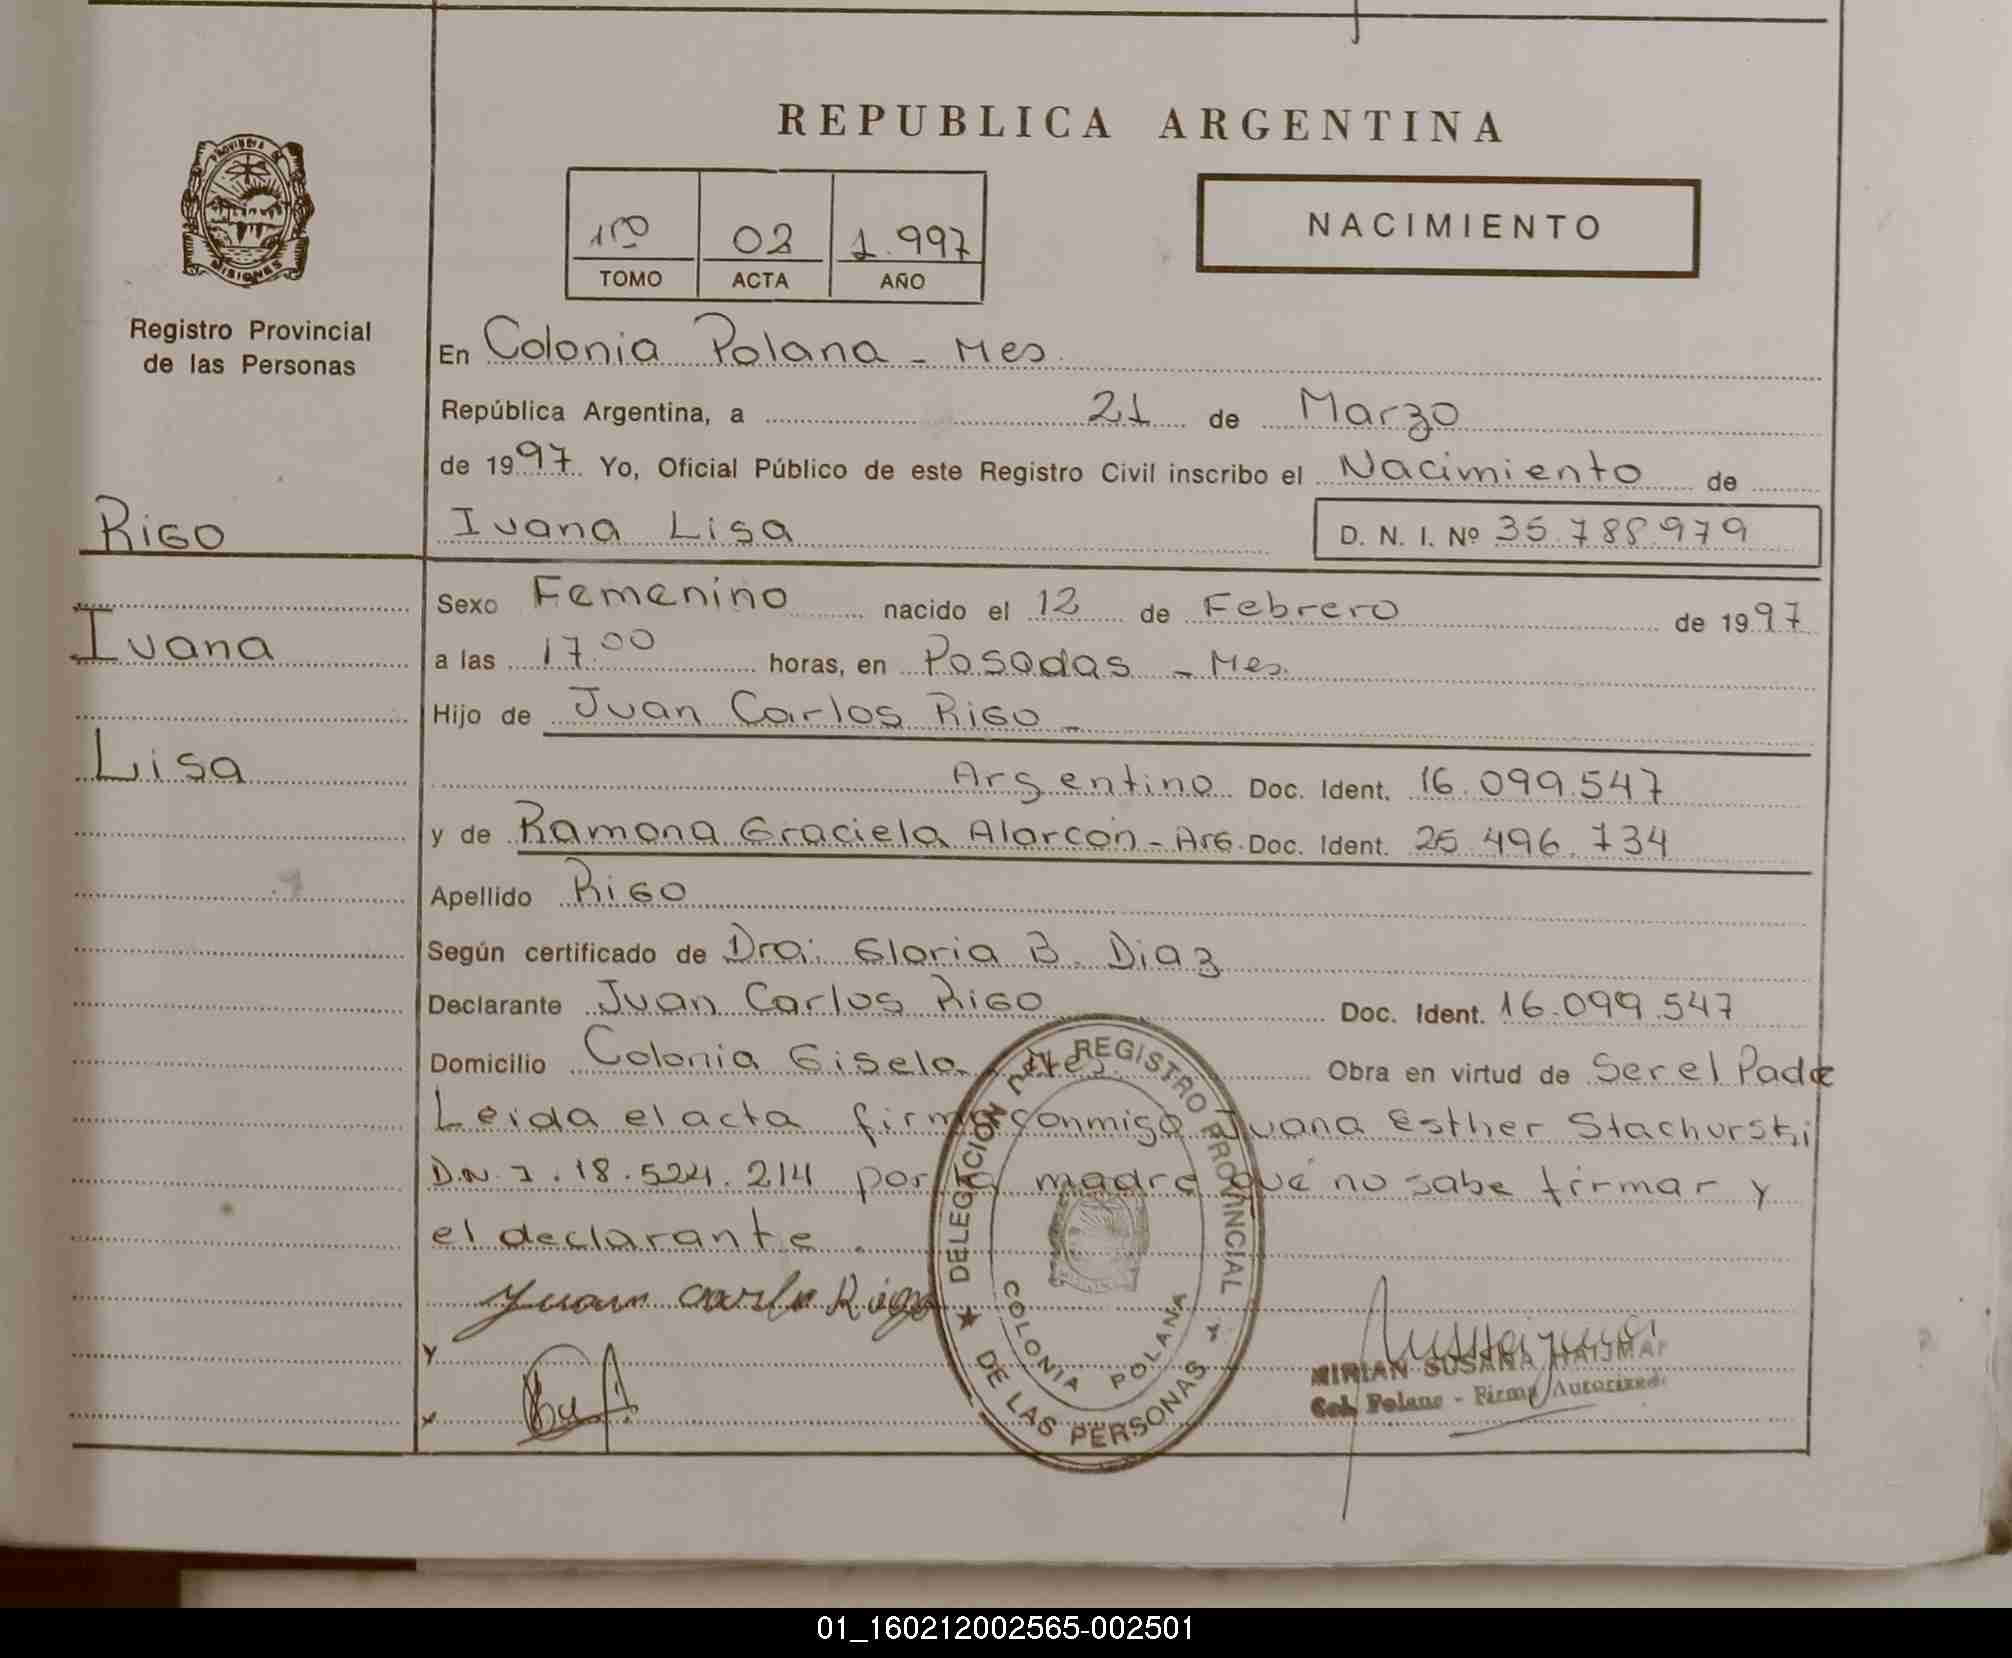 REPUBLICA ARGENTINA
PROVINCIA DE
MISIONES
Registro Provincial
de las Personas
1ro 02 1.997
TOMO ACTA AÑO
NACIMIENTO
En Colonia Polana - Mes.
República Argentina, a 21 de Marzo
de 1997. Yo, Oficial Público de este Registro Civil inscribo el Nacimiento de
RIGO
Ivana Lisa D. N. I. Nº 35.788.979
Sexo Femenino nacido el 12 de Febrero de 1997
Ivana
a las 17.00 horas, en Posadas - Mes.
Hijo de Juan Carlos RIGO -
Lisa
Argentino Doc. Ident. 16.099.547
y de Ramona Graciela Alarcon - ARG. Doc. Ident. 25.496.734
Apellido RIGO
Según certificado de Dra: Gloria B. Diaz
Declarante Juan Carlos RIGO Doc. Ident. 16.099.547
Domicilio Colonia Gisela - Mes. Obra en virtud de Ser el Padre
Leida el acta firma conmigo Juana Esther Stachurski
D.N.I. 18.524.214 por la madre que no sabe firmar y
el declarante.
Juan Carlo Rigo
DELEGACION DEL REGISTRO PROVINCIAL
DE LAS PERSONAS
COLONIA POLANA
MIRIAN SUSANA
Col. Polana - Firma Autorizada
01_160212002565-002501